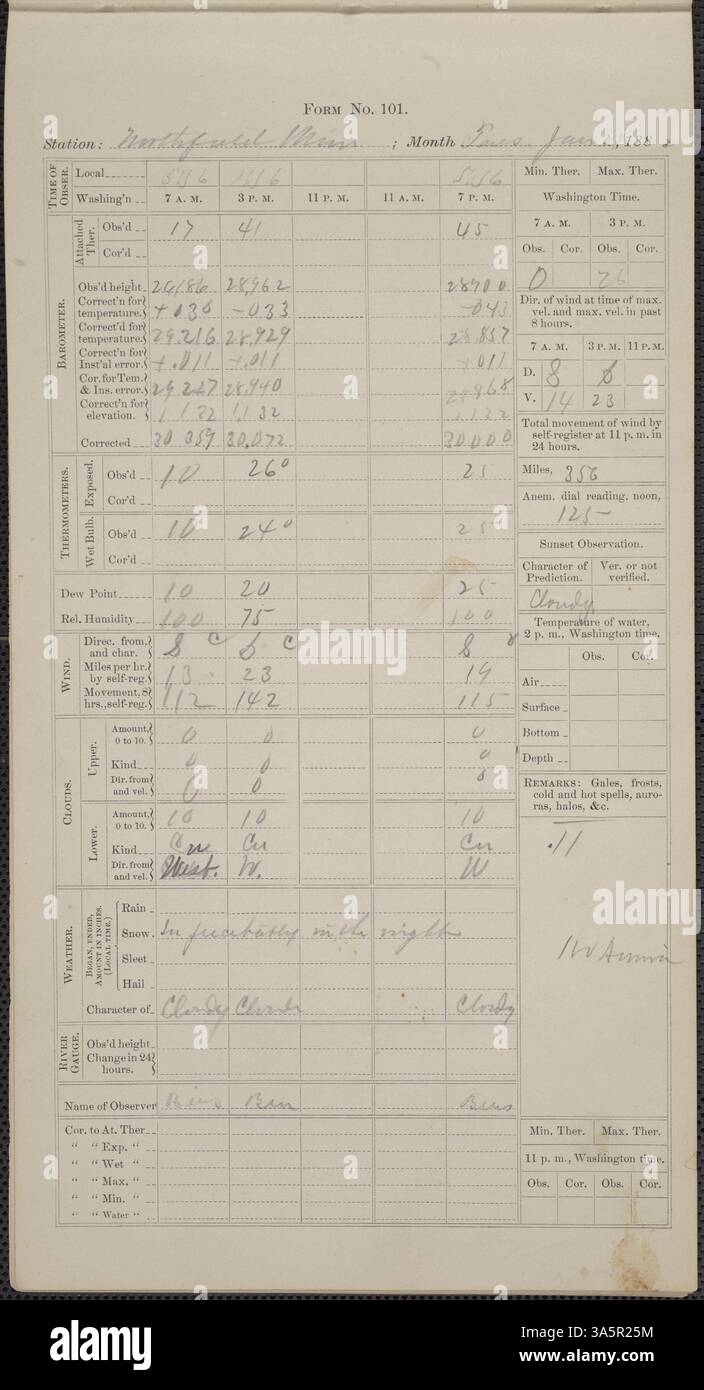 FORM NO. 101.
Station: Northfield Minn ; Month Tues Jan , 188 2
TIME OF OBSER. Local 5:56 1:56 5:56
Washing'n 7 A. M. 3 P. M. 11 P. M. 11 A. M. 7 P. M.
BAROMETER.
Attached Ther. Obs'd 17 41 45
Cor'd
Obs'd height 29.186 28.962 28900
Correct'n for temperature. +030 -033 -043
Correct'd for temperature. 29.216 28.929 28.857
Correct'n for Inst'al error. +.011 +.011 +011
Cor. for Tem. & Ins. error. 29 227 28.940 28868
Correct'n for elevation. 1132 1,132 1132
Corrected 30 359 30,072 30000
THERMOMETERS.
Exposed. Obs'd 10 26° 25
Cor'd
Wet Bulb. Obs'd 10 24° 25
Cor'd
Dew Point 10 20 25
Rel. Humidity 100 75 100
WIND.
Direc. from, and char. S c S c S
Miles per hr. by self-reg. 13 23 19
Movement, 8 hrs., self-reg. 112 142 115
CLOUDS.
Upper. Amount, 0 to 10. 0 0 0
Kind 0 0 0
Dir. from and vel. 0 0 0
Lower. Amount, 0 to 10. 10 10 10
Kind Cu Cu Cu
Dir. from and vel. West. W. W
WEATHER.
BEGAN, ENDED, AMOUNT IN INCHES. (LOCAL TIME.)
Rain
Snow in the night
Sleet
Hail
Character of Cloudy Cloudy Cloudy
RIVER GAUGE.
Obs'd height
Change in 24 hours.
Name of Observer
Cor. to At. Ther
" " Exp. "
" " Wet "
" " Max. "
" " Min. "
" " Water "
Min. Ther. Max. Ther.
Washington Time.
7 A. M. 3 P. M.
Obs. Cor. Obs. Cor.
0 26
Dir. of wind at time of max. vel. and max. vel. in past 8 hours.
7 A. M. 3 P. M. 11 P. M.
D. S S
V. 14 23
Total movement of wind by self-register at 11 p. m. in 24 hours.
Miles, 356
Anem. dial reading, noon,
125
Sunset Observation.
Character of Prediction. Ver. or not verified.
Cloudy
Temperature of water, 2 p. m., Washington time.
Obs. Cor.
Air
Surface
Bottom
Depth
REMARKS: Gales, frosts, cold and hot spells, auroras, halos, &c.
.11
Min. Ther. Max. Ther.
11 p. m., Washington time.
Obs. Cor. Obs. Cor.
alamy
Image ID: 3A5R25M
www.alamy.com